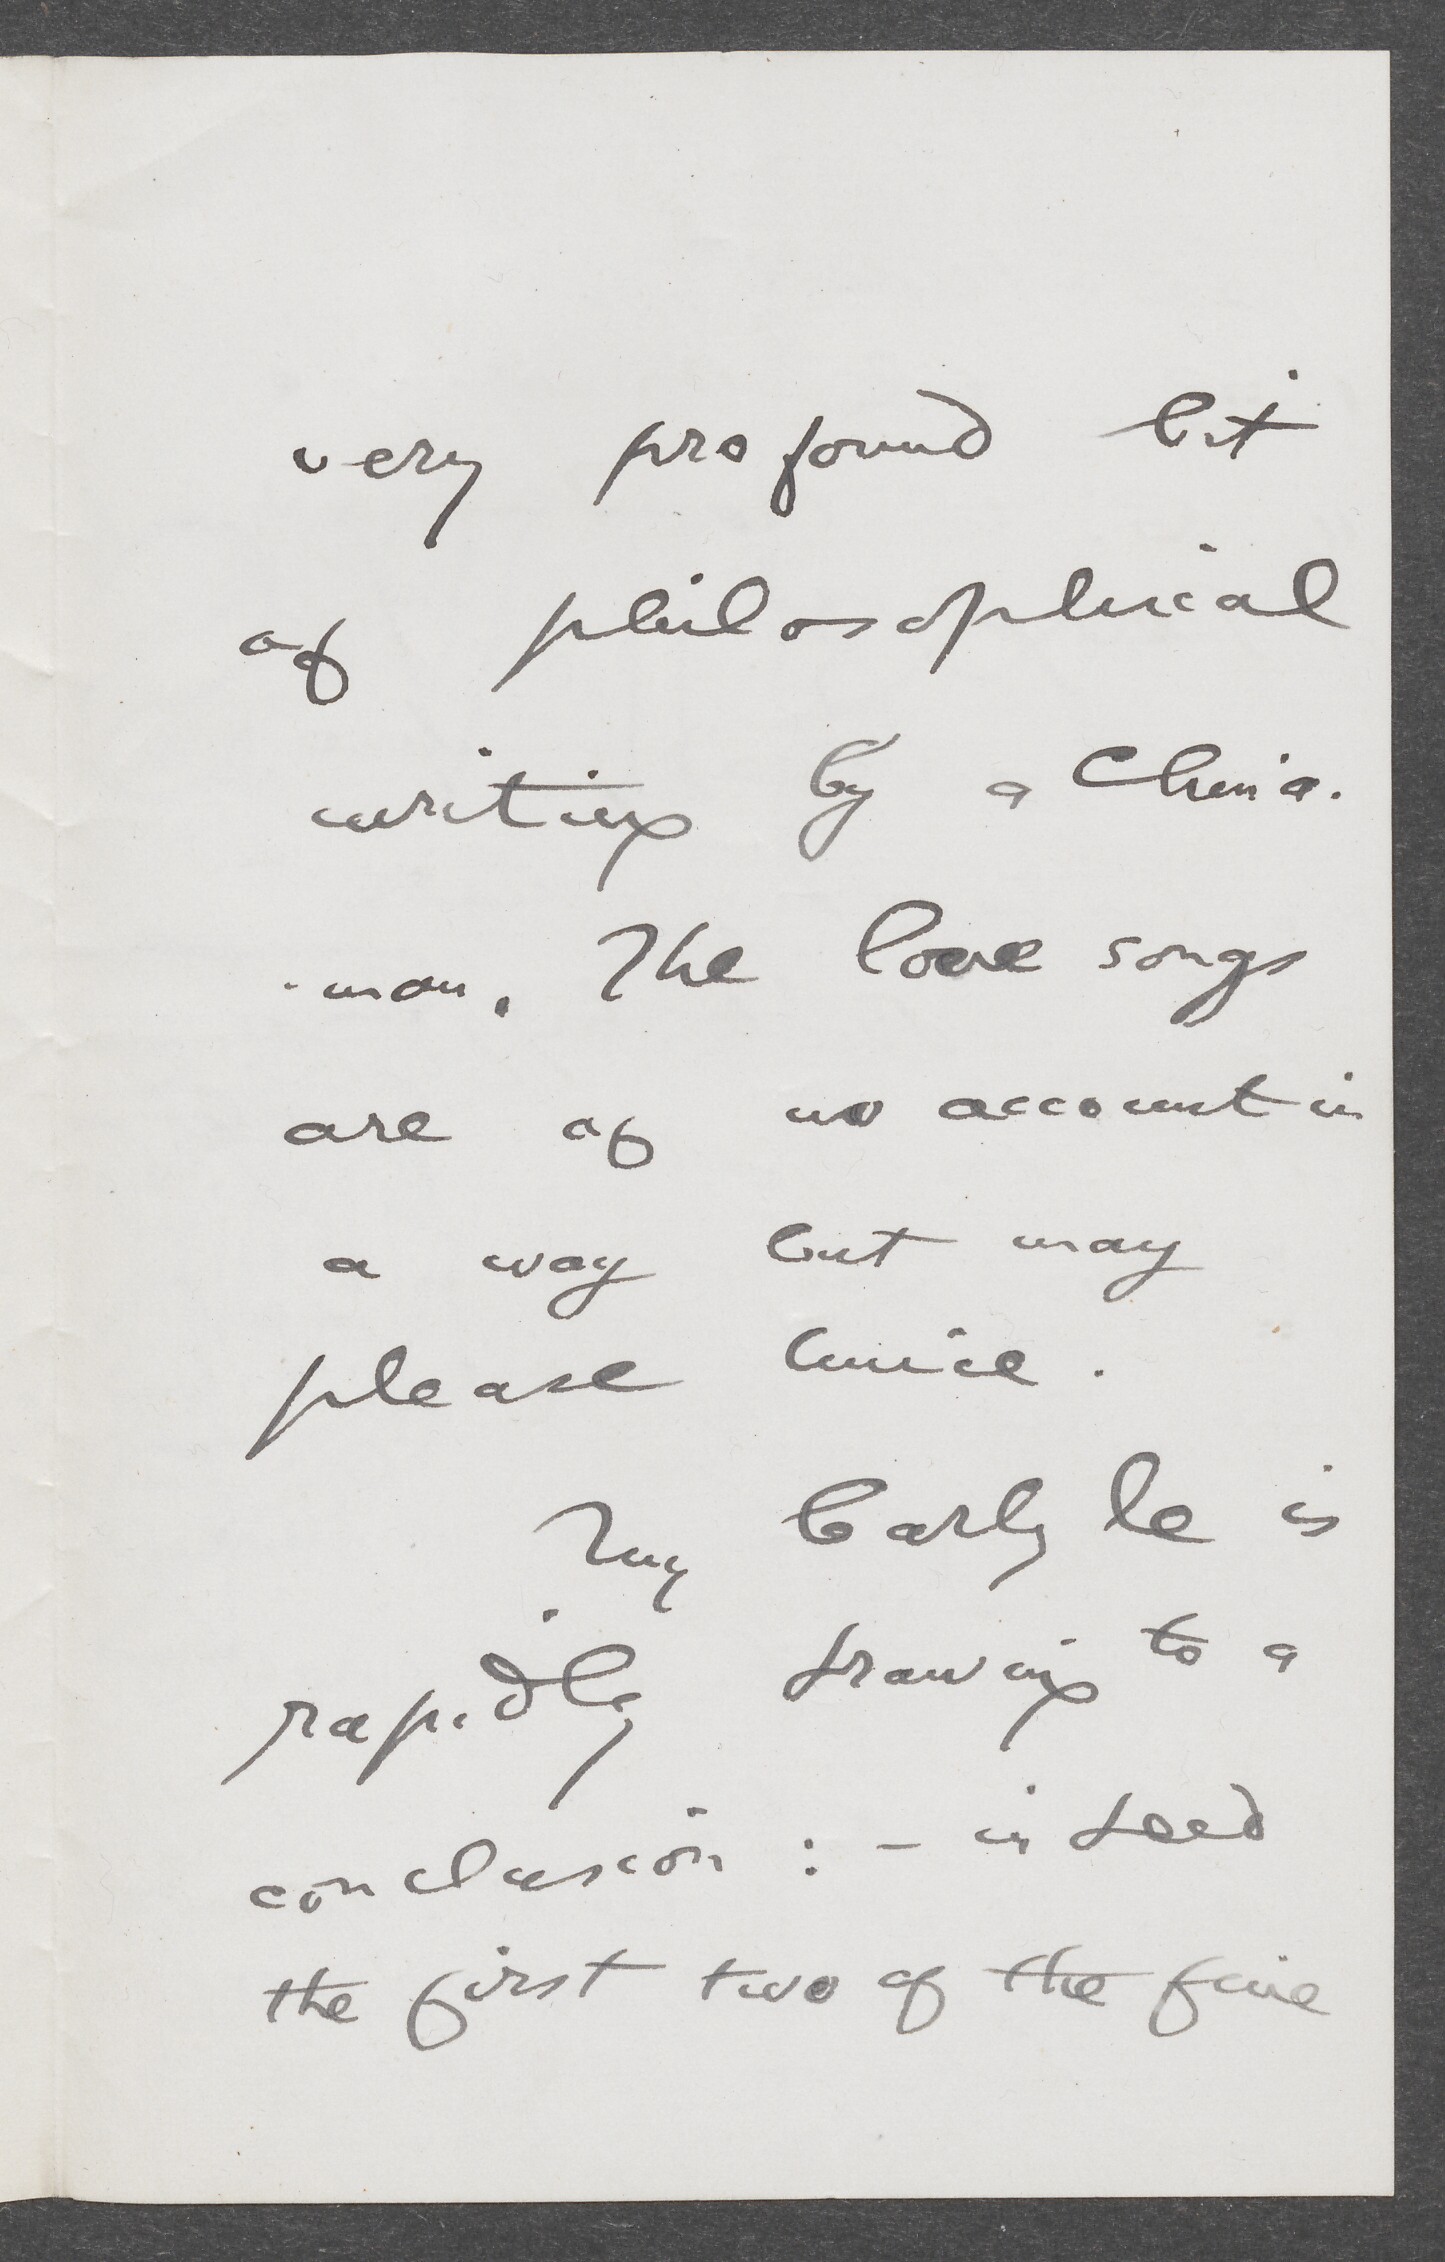 very profound bit
of philosophical
writing by a China-
-man. The love songs
are of no account in
a way but may
please
My Carlyle is
rapidly drawing to a
conclusion :- indeed
the first two of the five